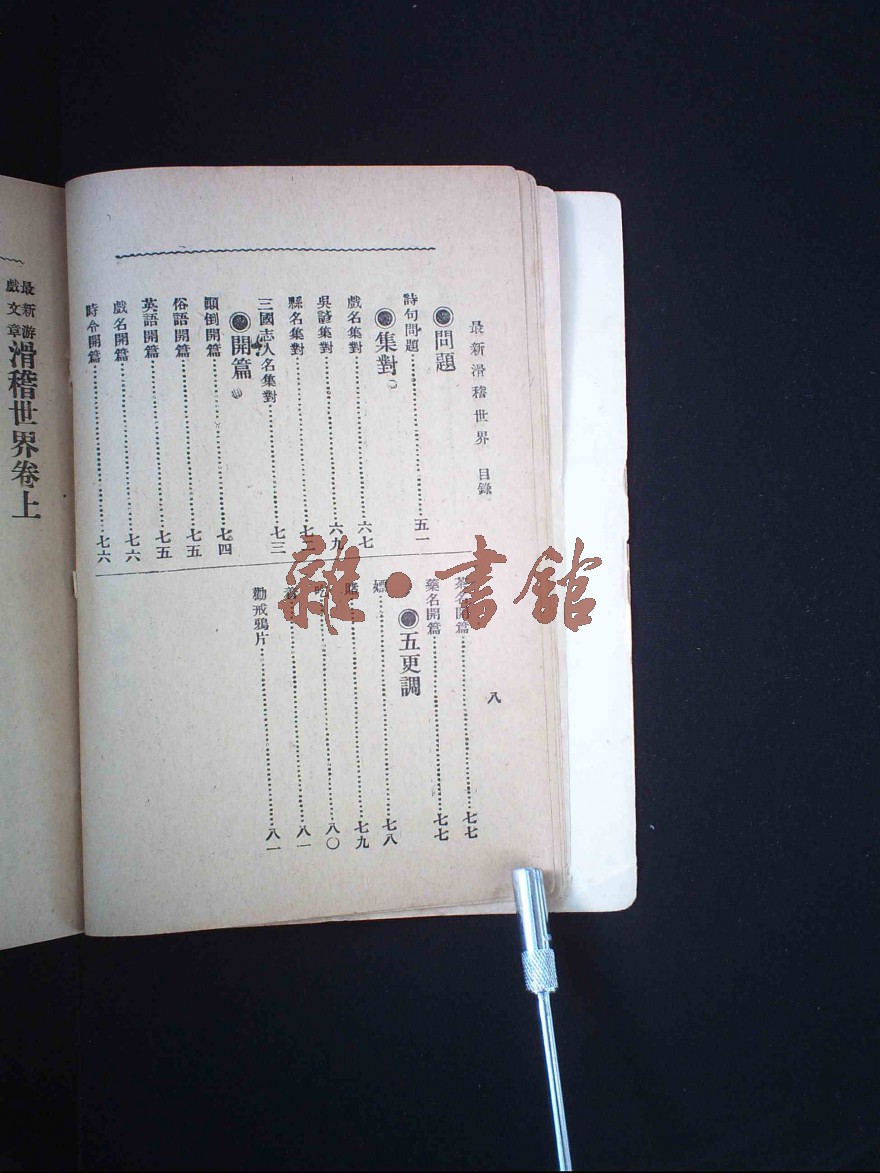 最新滑稽世界 目錄 八
●問題
詩句問題……五一
●集對
戲名集對……六七
吳諺集對……六九
縣名集對……七
三國志人名集對……七三
●開篇
顚倒開篇……七四
俗語開篇……七五
英語開篇……七五
戲名開篇……七六
時令開篇……七六
名開篇……七七
藥名開篇……七七
●五更調
嫖……七八
賭……七九
吃……八〇
……八一
勸戒鴉片……八一
最新游戲文章滑稽世界卷上
雜·書館